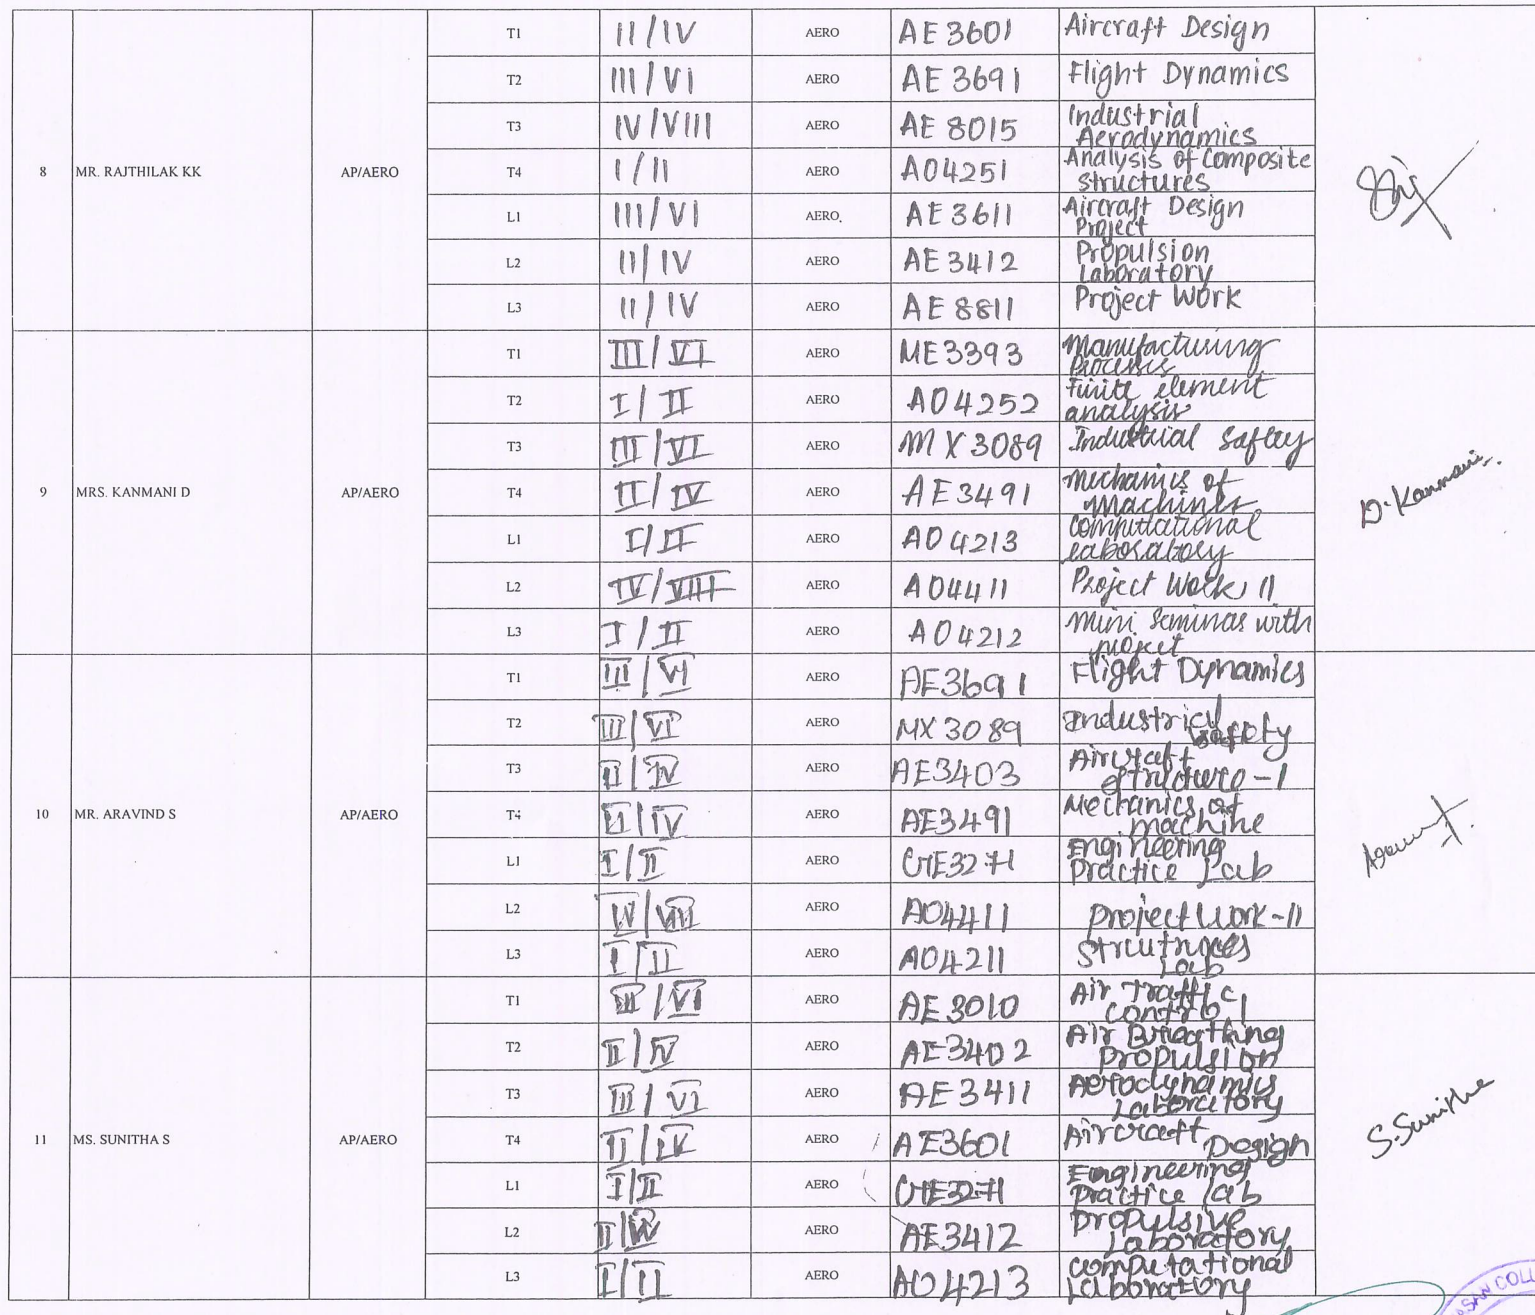 T1 II/IV AERO AE3601 Aircraft Design
T2 III/VI AERO AE 3691 Flight Dynamics
T3 IV/VIII AERO AE 8015 Industrial
Aerodynamics
8 MR. RAJTHILAK KK AP/AERO T4 I/II AERO AO4251 Analysis of Composite
structures
L1 III/VI AERO. AE 3611 Aircraft Design
Project
L2 II/IV AERO AE 3412 Propulsion
Laboratory
L3 II/IV AERO AE 8811 Project Work
T1 III/VI AERO ME3393 Manufacturing
Process
T2 I/II AERO AO4252 Finite element
analysis
T3 III/VI AERO MX3089 Industrial Saftey
9 MRS. KANMANI D AP/AERO T4 II/IV AERO AE3491 Mechanics of
Machines
D. Kanmani.
L1 I/II AERO AO4213 Computational
laboratory
L2 IV/VIII AERO AO4411 Project Work II
L3 I/II AERO AO4212 Mini Seminar with
project
T1 III/VI AERO AE3691 Flight Dynamics
T2 III/VI AERO MX3089 Industrial
safety
T3 II/IV AERO AE3403 Aircraft
structure-I
10 MR. ARAVIND S AP/AERO T4 II/IV AERO AE3491 Mechanics of
machine
L1 I/II AERO GE3271 Engineering
Practice Lab
L2 IV/VIII AERO AO4411 Project Work-II
L3 I/II AERO AO4211 Strcutnores
Lab
T1 III/VI AERO AE 3010 Air Traffic
control
T2 II/IV AERO AE3402 Air Breathing
propulsion
T3 III/VI AERO AE3411 Aerodynamics
Laboratory
11 MS. SUNITHA S AP/AERO T4 II/IV AERO AE3601 Aircraft Design
S.Sunitha
L1 I/II AERO GE3271 Engineering
Practice lab
L2 II/IV AERO AE3412 propulsive
Laboratory
L3 I/II AERO AO4213 computational
Laboratory